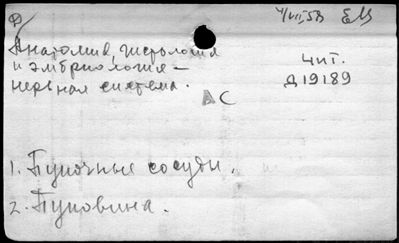 4/VII,58 ЕМ
Анатомия, гистология
и эмбриология —
нервная система.
Чит.
Д19189
АС
1. Пупочные сосуды.
2. Пуповина.